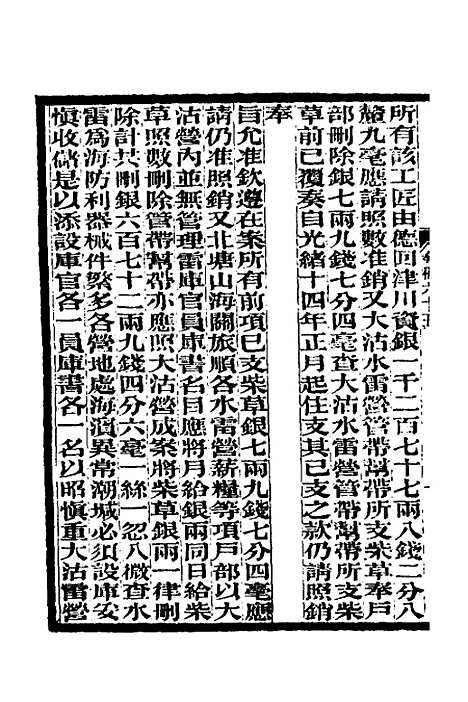 所有該工匠由德回津川資銀一千二百七十七兩八錢二分八
釐九毫應請照數准銷又大沽水雷營管帶幫帶所支柴草奉戶
部刪除銀七兩九錢七分四毫查大沽水雷營管帶幫帶所支柴
草前已覆奏自光緒十四年正月起住支其已支之款仍請照銷
奉
旨允准欽遵在案所有前項已支柴草銀七兩九錢七分四毫應
請仍准照銷又北塘山海關旅順各水雷營薪糧等項戶部以大
沽營內並無管理雷庫官員庫書名目應將月給銀兩同日給柴
草照數刪除管帶幫帶亦應照大沽營成案將柴草銀兩一律刪
除計共刪銀六百七十二兩九錢四分六毫一絲一忽八微查水
雷為海防利器械件繁多各營地處海濱異常潮堿必須設庫妥
慎收儲是以添設庫官各一員庫書各一名以昭慎重大沽雷營